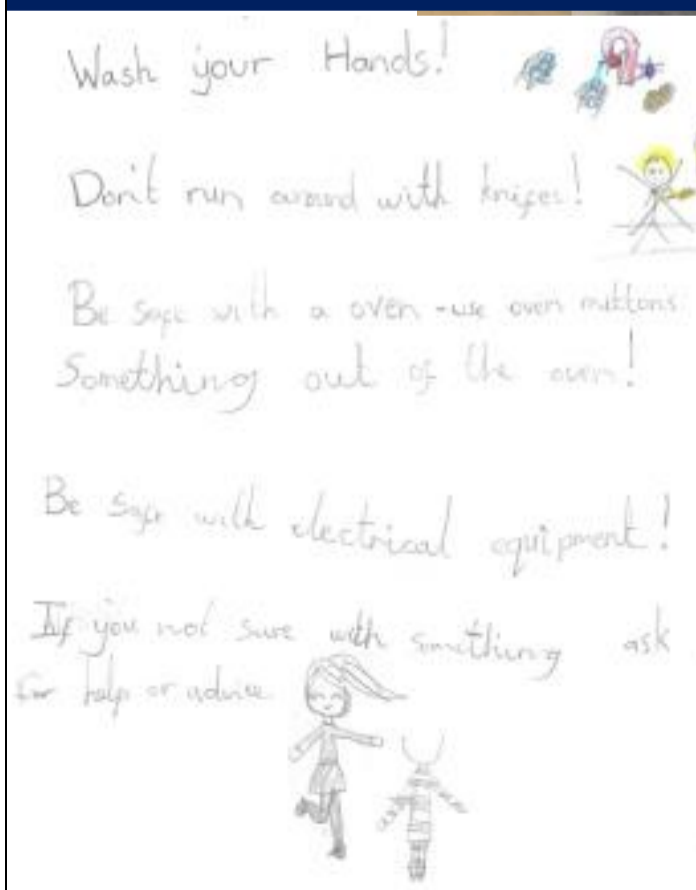 Wash your Hands!
Don't run around with knifes!
Be safe with a oven - use oven mittons
Something out of the oven!
Be safe with electrical equipment!
If you not sure with smithing ask
for help or advice